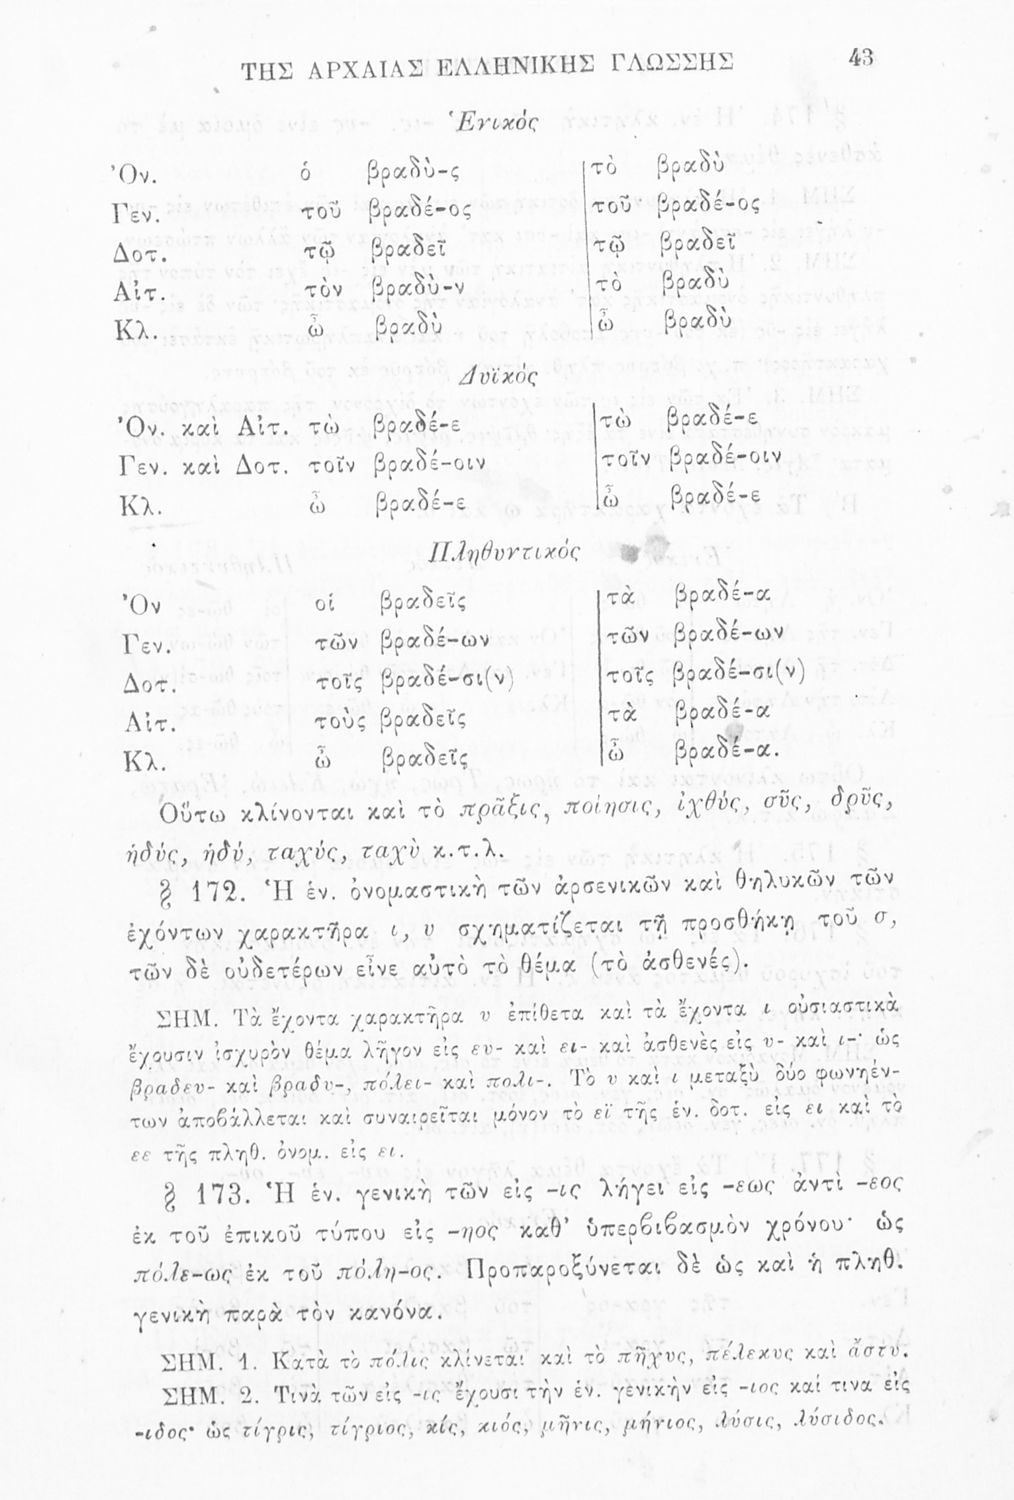 ΤΗΣ ΑΡΧΑΙΑΣ ΕΛΛΗΝΙΚΗΣ ΓΛΩΣΣΗΣ 43
Ἑνικός
Ὀν. ὁ βραδὺ-ς τὸ βραδὺ
Γεν. τοῦ βραδέ-ος τοῦ βραδέ-ος
Δοτ. τῷ βραδεῖ τῷ βραδεῖ
Αἰτ. τὸν βραδὺ-ν τὸ βραδὺ
Κλ. ὦ βραδὺ ὦ βραδὺ
Δυϊκός
Ὀν. καὶ Αἰτ. τὼ βραδέ-ε τὼ βραδέ-ε
Γεν. καὶ Δοτ. τοῖν βραδέ-οιν τοῖν βραδέ-οιν
Κλ. ὦ βραδέ-ε ὦ βραδέ-ε
Πληθυντικός
Ὀν οἱ βραδεῖς τὰ βραδέ-α
Γεν. τῶν βραδέ-ων τῶν βραδέ-ων
Δοτ. τοῖς βραδέ-σι(ν) τοῖς βραδέ-σι(ν)
Αἰτ. τοὺς βραδεῖς τὰ βραδέ-α
Κλ. ὦ βραδεῖς ὦ βραδέ-α.
Οὕτω κλίνονται καὶ τὸ πρᾶξις, ποίησις, ἰχθύς, σῦς, δρῦς,
ἡδύς, ἡδύ, ταχύς, ταχὺ κ.τ.λ.
§ 172. Ἡ ἑν. ὀνομαστικὴ τῶν ἀρσενικῶν καὶ θηλυκῶν τῶν
ἐχόντων χαρακτῆρα ι, υ σχηματίζεται τῇ προσθήκῃ τοῦ σ,
τῶν δὲ οὐδετέρων εἶνε αὐτὸ τὸ θέμα (τὸ ἀσθενές).
ΣΗΜ. Τὰ ἔχοντα χαρακτῆρα υ ἐπίθετα καὶ τὰ ἔχοντα ι οὐσιαστικὰ
ἔχουσιν ἰσχυρὸν θέμα λῆγον εἰς ευ- καὶ ει- καὶ ἀσθενὲς εἰς υ- καὶ ι-· ὡς
βραδευ- καὶ βραδυ-, πόλει- καὶ πολι-. Τὸ υ καὶ ι μεταξὺ δύο φωνηέν-
των ἀποβάλλεται καὶ συναιρεῖται μόνον τὸ εϊ τῆς ἑν. δοτ. εἰς ει καὶ τὸ
εε τῆς πληθ. ὀνομ. εἰς ει.
§ 173. Ἡ ἑν. γενικὴ τῶν εἰς -ις λήγει εἰς -εως ἀντὶ -εος
ἐκ τοῦ ἐπικοῦ τύπου εἰς -ηος καθ' ὑπερβιβασμὸν χρόνου· ὡς
πόλε-ως ἐκ τοῦ πόλη-ος. Προπαροξύνεται δὲ ὡς καὶ ἡ πληθ.
γενικὴ παρὰ τὸν κανόνα.
ΣΗΜ. 1. Κατὰ τὸ πόλις κλίνεται καὶ τὸ πῆχυς, πέλεκυς καὶ ἄστυ.
ΣΗΜ. 2. Τινὰ τῶν εἰς -ις ἔχουσι τὴν ἑν. γενικὴν εἰς -ιος καί τινα εἰς
-ιδος· ὡς τίγρις, τίγριος, κίς, κιός, μῆνις, μήνιος, λύσις, λύσιδος.